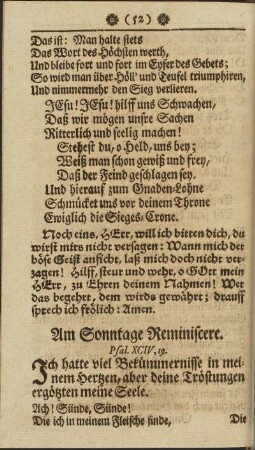 (52)
Das ist: Man halte stets
Das Wort des Höchsten werth,
Und bleibe fort und fort im Eyfer des Gebets;
So wird man über Höll' und Teufel triumphiren,
Und nimmermehr den Sieg verlieren.
JEsu! JEsu! hilff uns Schwachen,
Daß wir mögen unsre Sachen
Ritterlich und seelig machen!
Stehest du, o Held, uns bey;
Weiß man schon gewiß und frey,
Daß der Feind geschlagen sey.
Und hierauf zum Gnaden-Lohne
Schmücket uns vor deinem Throne
Ewiglich die Sieges-Crone.
Noch eins, HErr, will ich bitten dich, du
wirst mirs nicht versagen: Wann mich der
böse Geist anficht, laß mich doch nicht ver-
zagen! Hilff, steur und wehr, o GOtt mein
HErr, zu Ehren deinem Nahmen! Wer
das begehrt, dem wirds gewährt; drauff
sprech ich frölich: Amen.
Am Sonntage Reminiscere.
Psal. XCIV, 19.
Ich hatte viel Bekümmernisse in mei-
nem Hertzen, aber deine Tröstungen
ergötzten meine Seele.
Ach! Sünde, Sünde!
Die ich in meinem Fleische finde,
Die